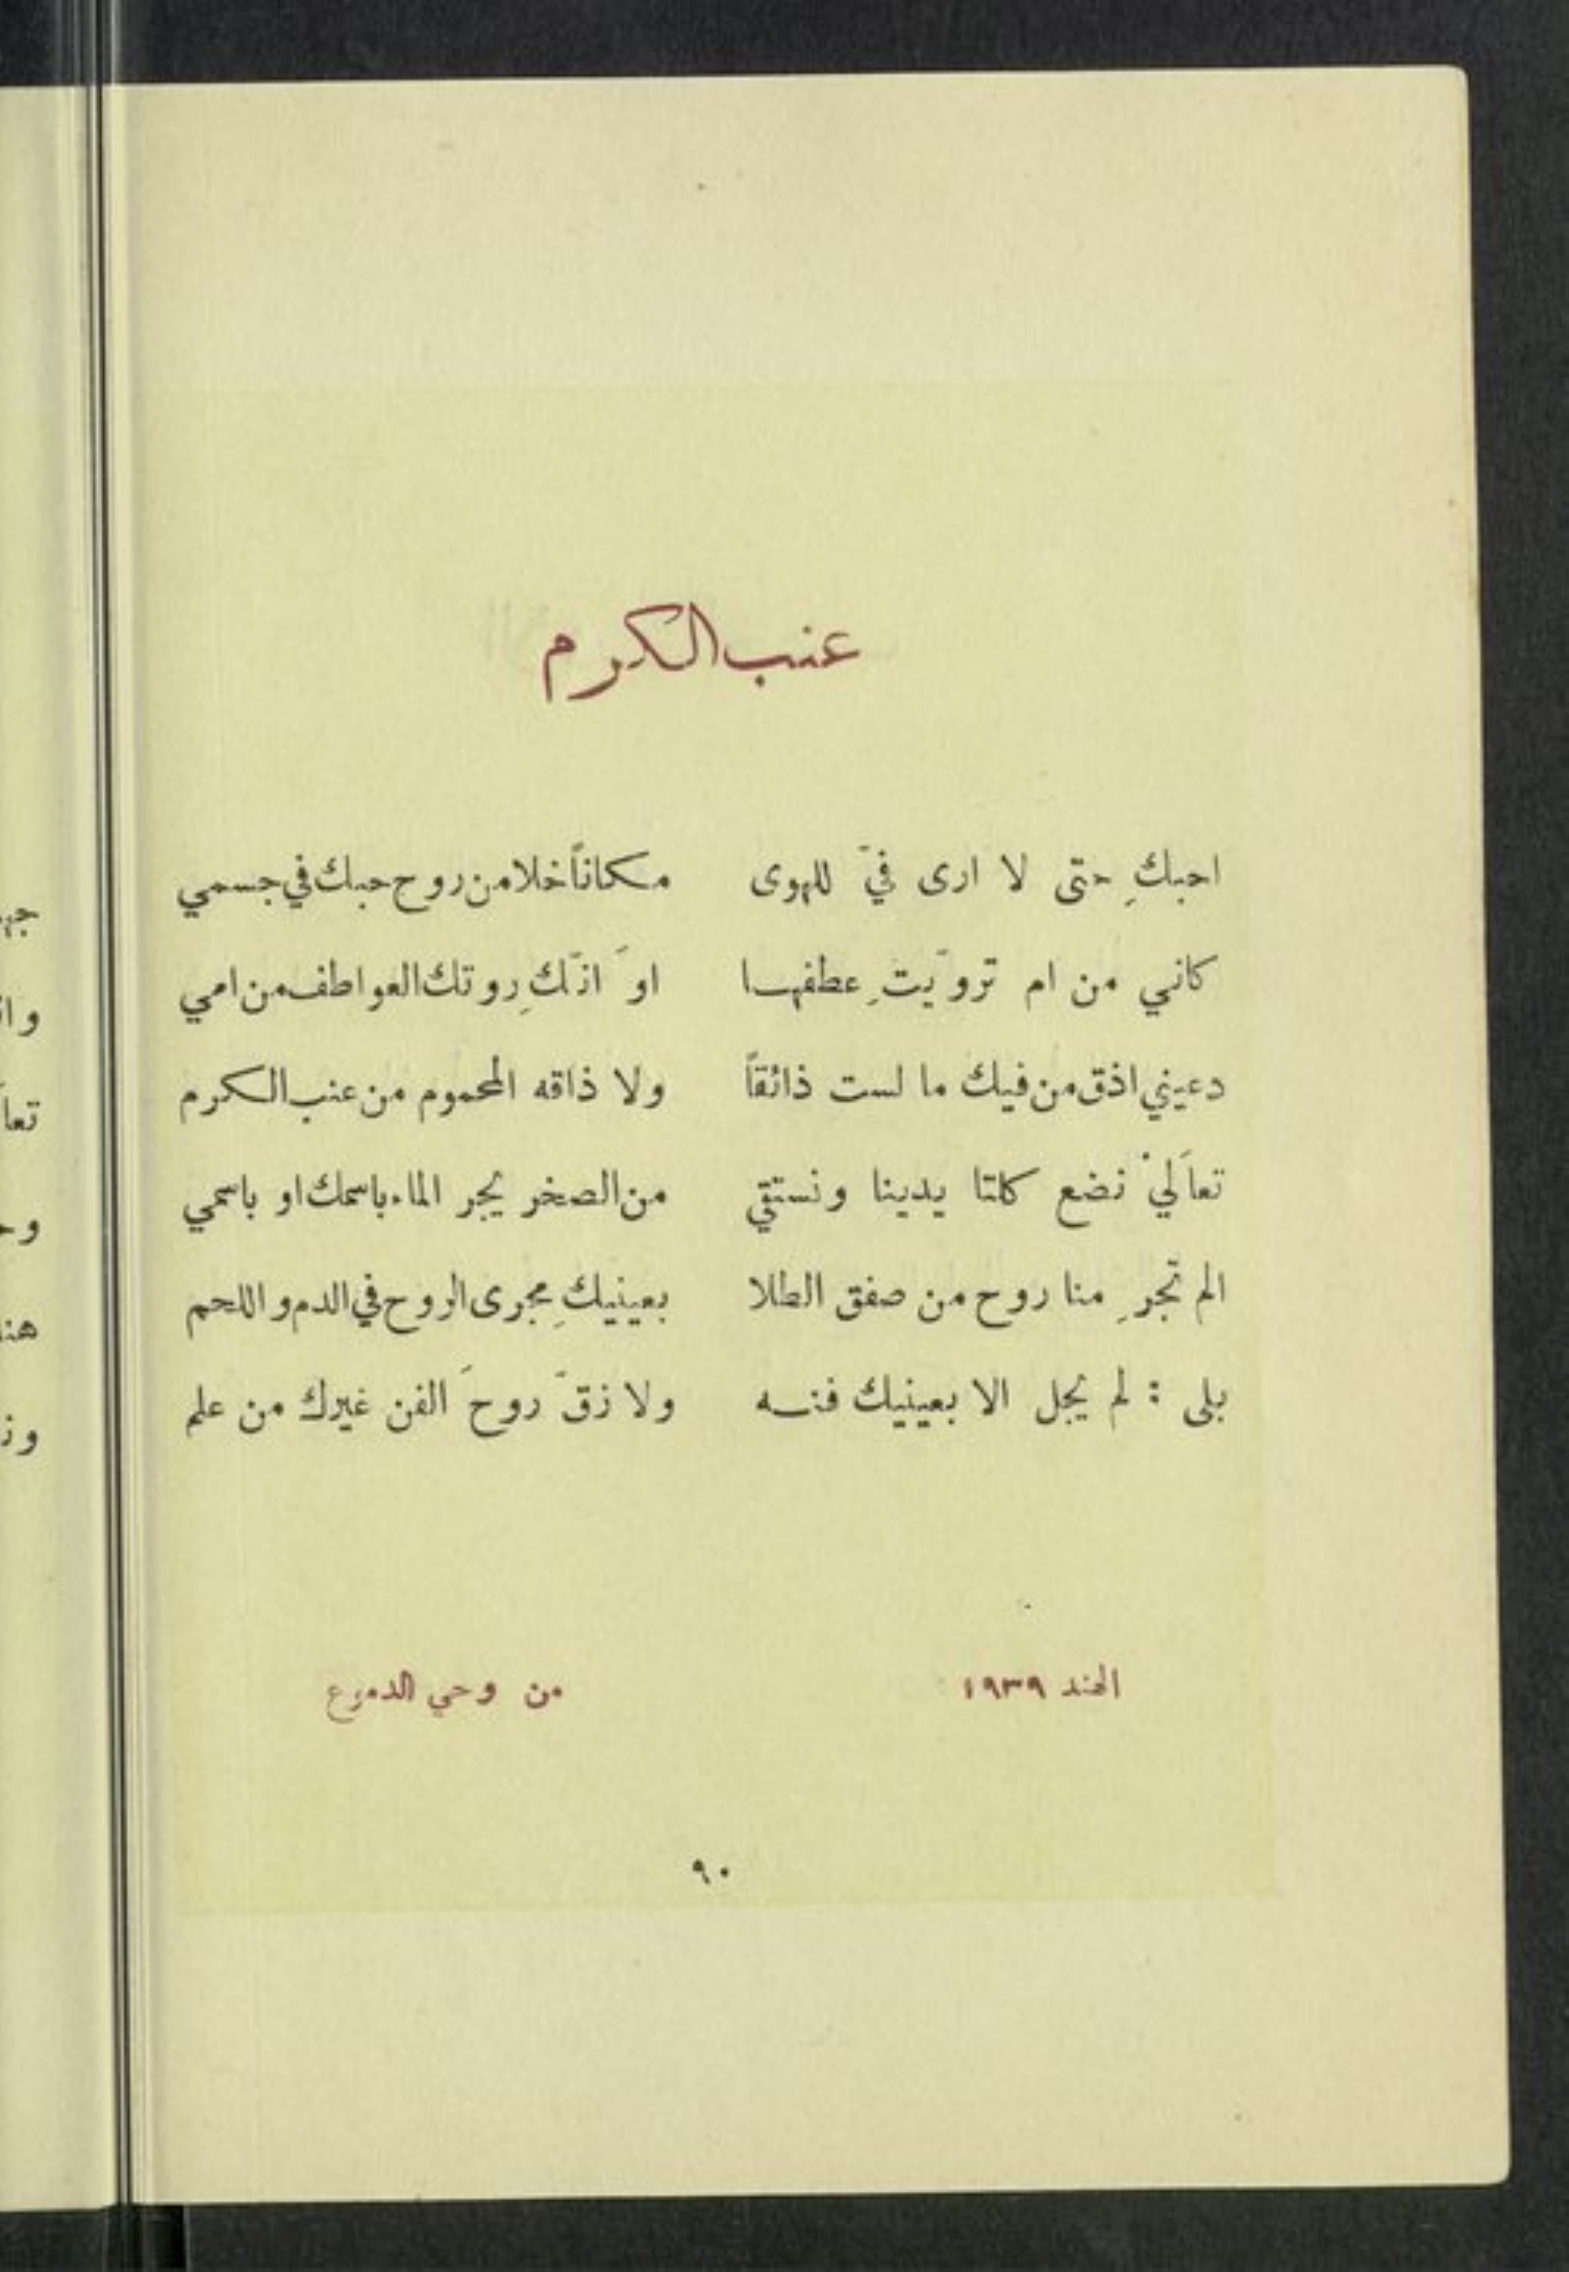 عنب الكرم
احبكِ حتى لا ارى فيَّ للهوى مكاناً خلا من روح حبك في جسمي
كاني من ام تروَّيتِ عطفها اوَ انّكِ روتك العواطف من امي
دعيني اذق من فيك ما لست ذائقاً ولا ذاقه المحموم من عنب الكرم
تعاَليْ نضع كلتا يدينا ونستقي من الصخر يجر الماء باسمك او باسمي
الم تجرِ منا روح من صفق الطلا بعينيكِ مجرى الروح في الدم واللحم
بلى : لم يجل الا بعينيك فنه ولا زقَّ روحَ الفن غيرك من علم
الهند ١٩٣٩ من وحي الدموع
٩٠